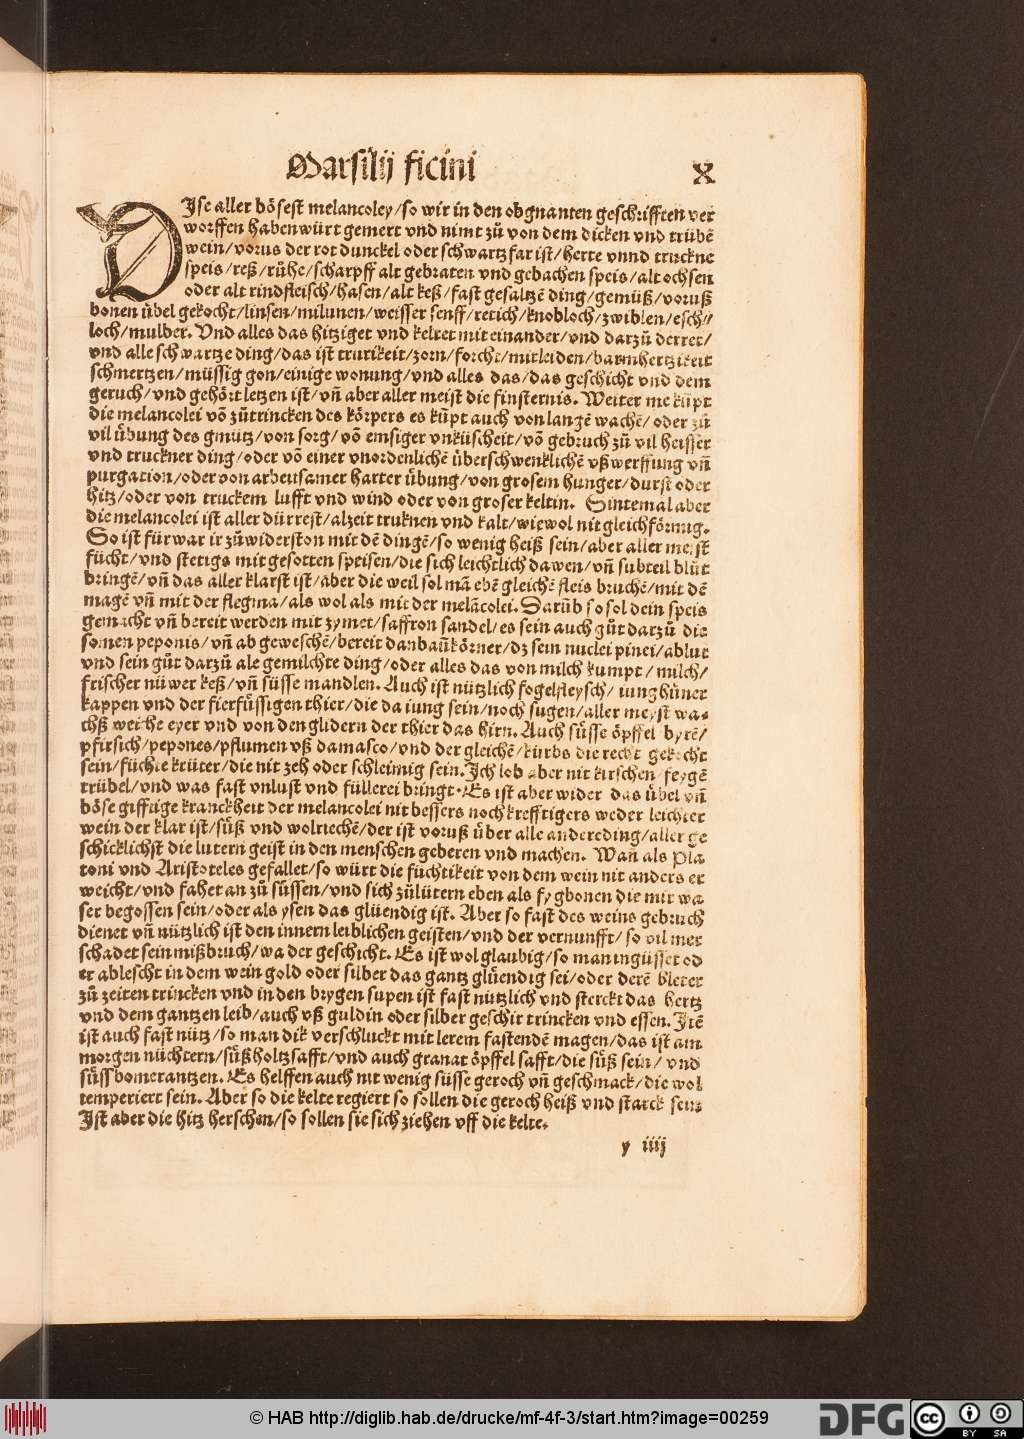 Marsilij ficini X
DJse aller bo̊sest melancoley/so wir in den obgnanten geschrifften ver
worffen haben würt gemert vnd nimt zů von dem dicken vnd trübē
wein/vorus der rot dunckel oder schwartzfar ist/herte vnnd truckne
speis/reß/rühe/scharpff alt gebraten vnd gebachen speis/alt ochsen
oder alt rindfleisch/hasen/alt keß/fast gesaltzē ding/gemüß/voruß
bonen übel gekocht/linsen/milunen/weisser senff/retich/knobloch/zwiblen/esch//
loch/mulber. Vnd alles das hitziget vnd keltet mit einander/vnd darzů derret/
vnd alle schwartze ding/das ist trurikeit/zorn/forcht/mitleiden/barmhertzikeit
schmertzen/müssig gon/einige wonung/vnd alles das/das gesicht vnd dem
geruch/vnd gehört letzen ist/vñ aber aller meist die finsternis. Weiter me kūpt
die melancolei vō zůtrincken des körpers es kūpt auch von langē wachē/oder zů
vil übung des gmütz/von sorg/vō emsiger vnküscheit/vō gebruch zů vil heisser
vnd truckner ding/oder vō einer vnordenlichē überschwenklichē vßwerffung vñ
purgation/oder von arbeitsamer harter übung/von grosem hunger/durst oder
hitz/oder von truckem lufft vnd wind oder von groser keltin. Sintemal aber
die melancolei ist aller dürrest/alzeit truknen vnd kalt/wiewol nit gleichförmig.
So ist für war ir zůwiderston mit dē dingē/so wenig heiß sein/aber aller meist
fücht/vnd stetigs mit gesotten speisen/die sich leichtlich dawen/vñ subteil blůt
bringē/vñ das aller klarst ist/aber die weil sol mā ebē gleichē fleis bruchē/mit dē
magē vñ mit der flegma/als wol als mit der melācolei. Darūb so sol dein speis
gemacht vñ bereit werden mit zymet/saffron sandel/es sein auch gůt darzů die
somen peponis/vñ abgeweschē/bereit danbaūkörner/dz sein nuclei pinei/ablut
vnd sein gůt darzů ale gemilchte ding/oder alles das von milch kumpt/milch/
frischer nüwer keß/vñ süsse mandlen. Auch ist nützlich fogelfleysch/iung hüner
kappen vnd der fierfüssigen thier/die da iung sein/noch sugen/aller meyst wa-
chß weiche eyer vnd von den glidern der thier das hirn. Auch süsse öpffel byrē/
pfirsich/pepones/pflumen vß damasco/vnd der gleichē/kürbs die recht gekocht
sein/füchte krüter/die nit zeh oder schleimig sein. Ich lob aber nit kirschen feygē
trübel/vnd was fast vnlust vnd füllerei bringt. Es ist aber wider das übel vñ
böse gifftige kranckheit der melancolei nit bessers noch krefftigers weder leichter
wein der klar ist/süß vnd wolriechē/der ist voruß über alle andere ding/aller ge
schicklichst die lutern geist in den menschen geberen vnd machen. Wan als Pla
toni vnd Aristoteles gefallet/so würt die füchtikeit von dem wein nit anders er
weicht/vnd fahet an zů süssen/vnd sich zůlütern eben als fygbonen die mit wa
ser begossen sein/oder als ysen das glüendig ist. Aber so fast des weins gebruch
dienet vñ nützlich ist den innern leiblichen geisten/vnd der vernunfft/so vil mer
schadet sein mißbruch/wa der geschicht. Es ist wol glaubig/so man ingüsset od
er ablescht in dem wein gold oder silber das gantz glüendig sei/oder derē bleter
zů zeiten trincken vnd in den brygen supen ist fast nützlich vnd sterckt das hertz
vnd dem gantzen leib/auch vß guldin oder silber geschir trincken vnd essen. Itē
ist auch fast nütz/so man dik verschluckt mit lerem fastendē magen/das ist am
morgen nüchtern/süßholtzsafft/vnd auch granat öpffel safft/die süß sein/vnd
süssbomerantzen. Es helffen auch nit wenig süsse geroch vñ geschmack/die wol
temperiert sein. Aber so die kelte regiert so sollen die geroch heiß vnd starck sein
Ist aber die hitz herschen/so sollen sie sich ziehen vff die kelte.
y iiij
© HAB http://diglib.hab.de/drucke/mf-4f-3/start.htm?image=00259
DFG cc BY SA